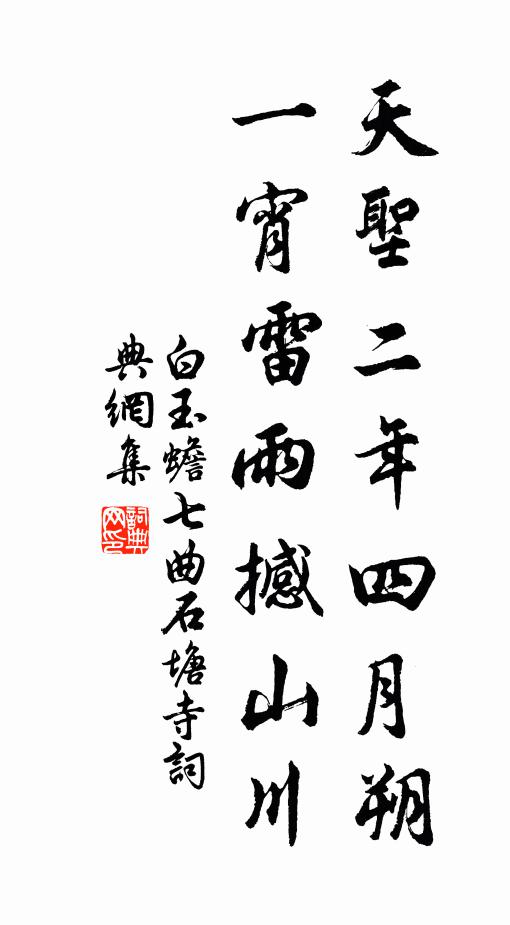 天聖二年四月朔
一宵雷雨撼山川
白玉蟾七曲石塘寺詞
典網集
詞典網印